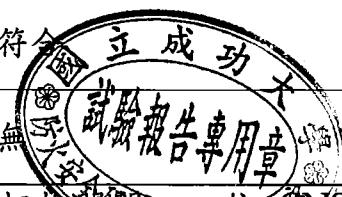 符合
國立成功大學
試驗報告專用章
無
防火安全